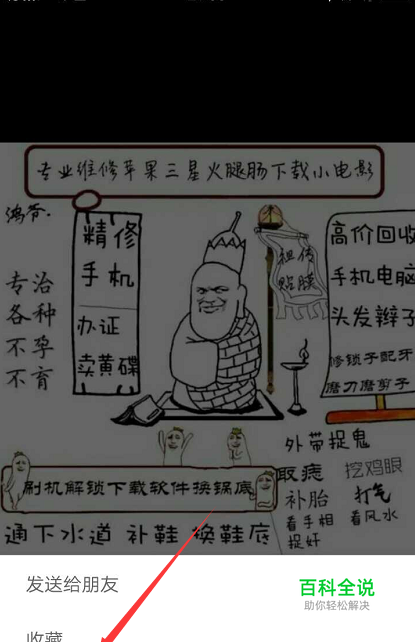 专业维修苹果三星火腿肠下载小电影
鸿爷.
精修
手机
办证
卖黄碟
专治
各种
不孕
不育
祖传
贴膜
高价回收
手机电脑
头发辫子
修锁子配牙
磨刀磨剪子
外带捉鬼
刷机解锁下载软件换锅底
取痣
挖鸡眼
补胎
打气
看手相
看风水
捉奸
通下水道 补鞋 换鞋底
发送给朋友
百科全说
助你轻松解决
收藏